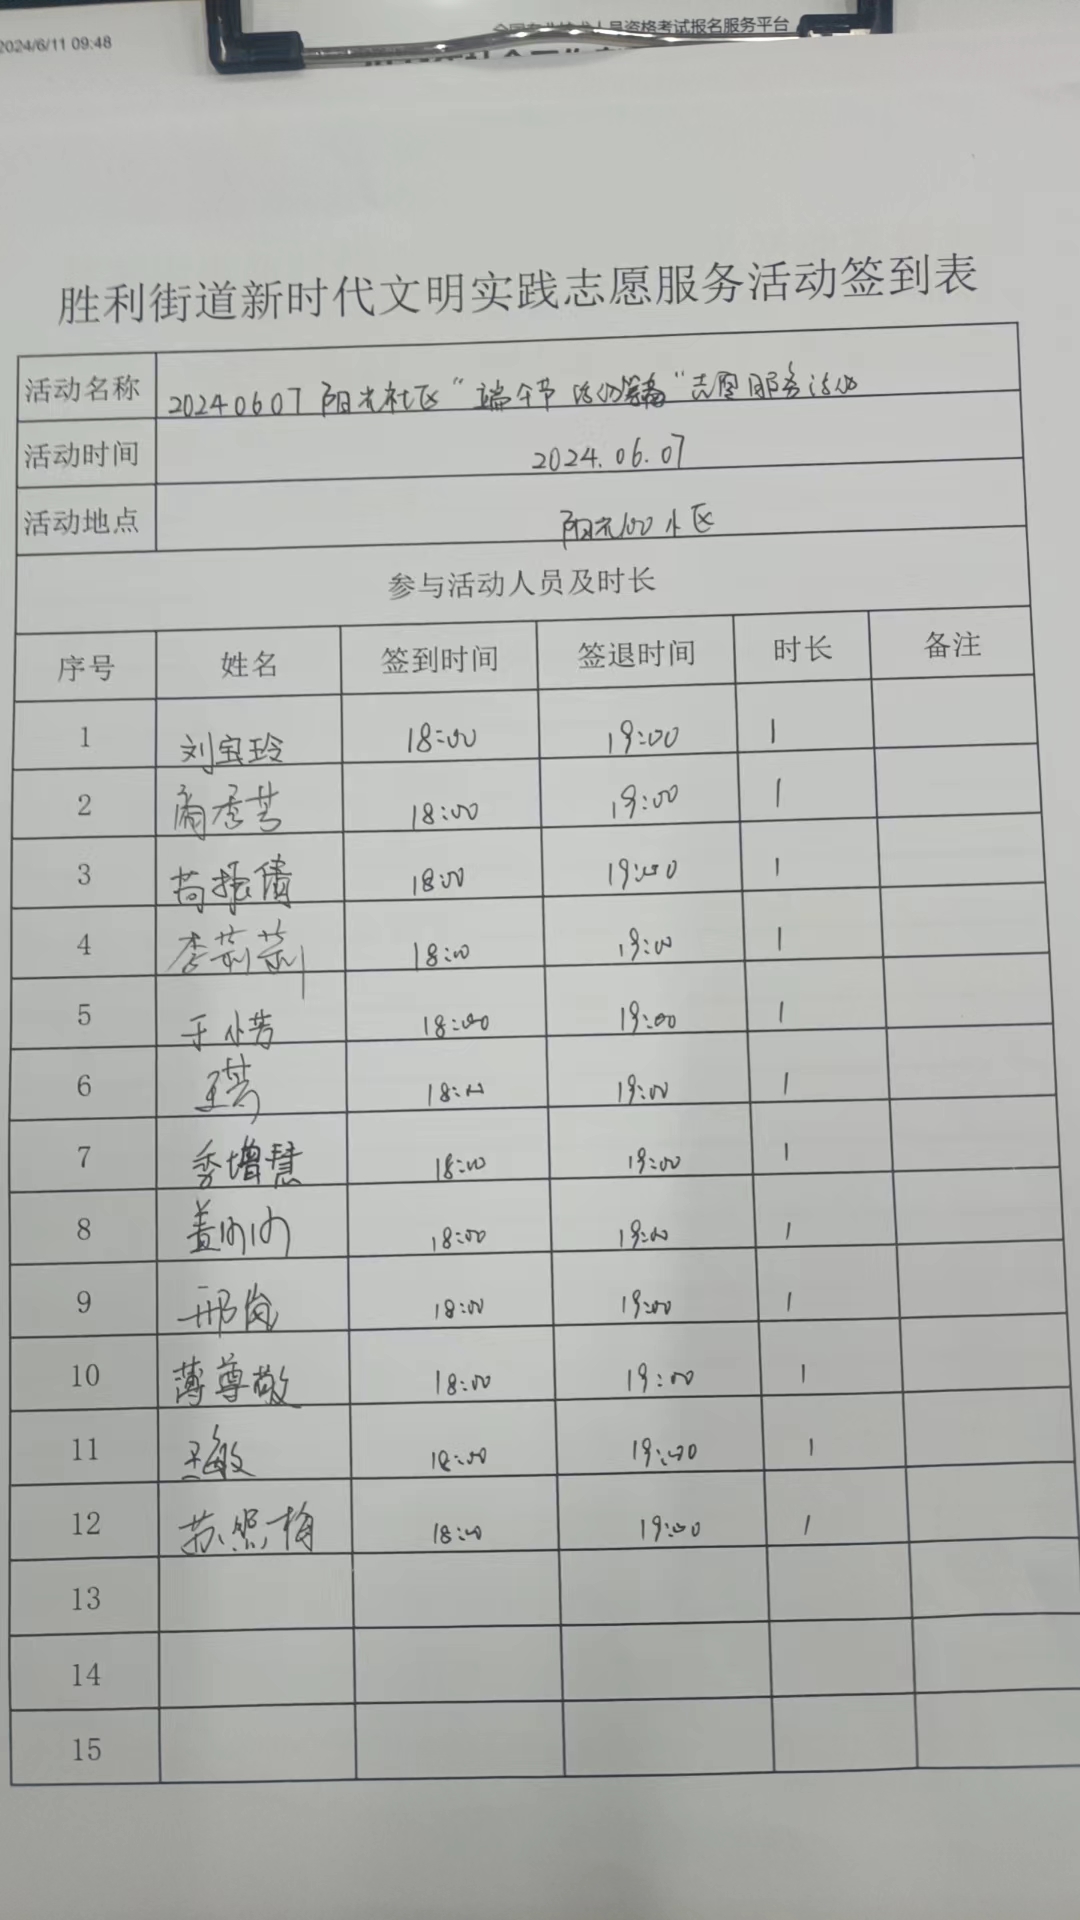 2024/6/11 09:48
全国专业技术人员资格考试报名服务平台
胜利街道新时代文明实践志愿服务活动签到表
活动名称 20240607 阳光社区“端午节 活动筹备”志愿服务活动
活动时间 2024.06.07
活动地点 阳光100小区
参与活动人员及时长
序号 姓名 签到时间 签退时间 时长 备注
1 刘宝玲 18:00 19:00 1
2 18:00 19:00 1
3 18:00 19:00 1
4 李莉莉 18:00 19:00 1
5 于小芳 18:00 19:00 1
6 18:00 19:00 1
7 季增慧 18:00 19:00 1
8 18:00 19:00 1
9 邢岚 18:00 19:00 1
10 薄尊敬 18:00 19:00 1
11 王敏 18:00 19:00 1
12 苏照梅 18:00 19:00 1
13
14
15